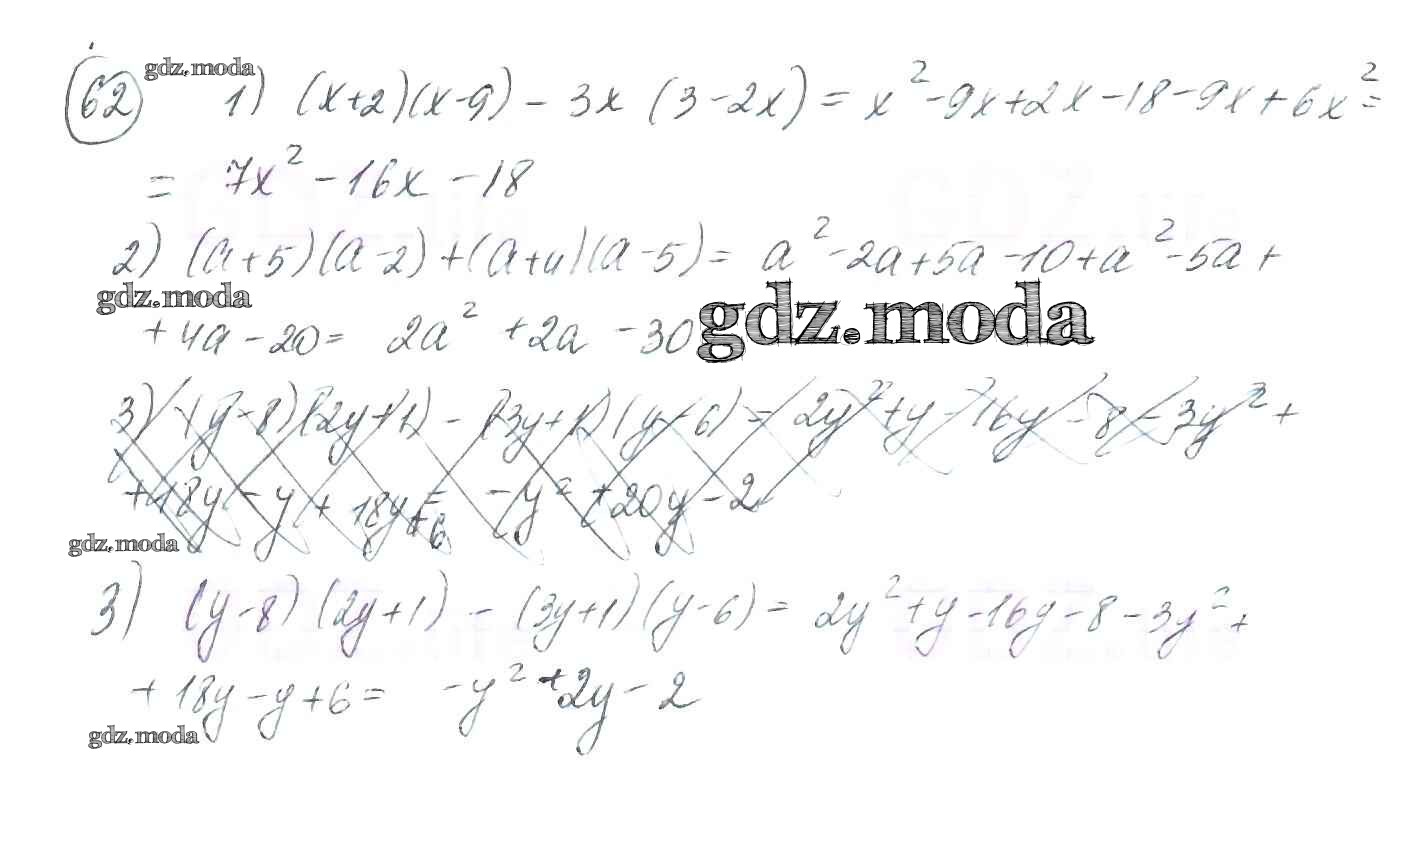 gdz.moda
62 1) (x+2)(x-9) - 3x (3-2x) = x² -9x+2x-18-9x+6x² =
= 7x² -16x -18
2) (a+5)(a-2)+(a+4)(a-5)= a² -2a+5a-10+a² -5a +
gdz.moda
+ 4a -20 = 2a² +2a -30
gdz.moda
3) (y-8)(2y+1) - (3y+1)(y-6) = 2y² +y -16y -8 -3y² +
+18y -y + 18y+6 = -y² +20y -2
gdz.moda
3) (y-8)(2y+1) - (3y+1)(y-6) = 2y² +y -16y -8 -3y² +
+ 18y -y +6 = -y² +2y -2
gdz.moda